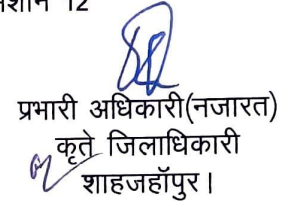 प्रभारी अधिकारी(नजारत)
कृते जिलाधिकारी
शाहजहॉपुर।